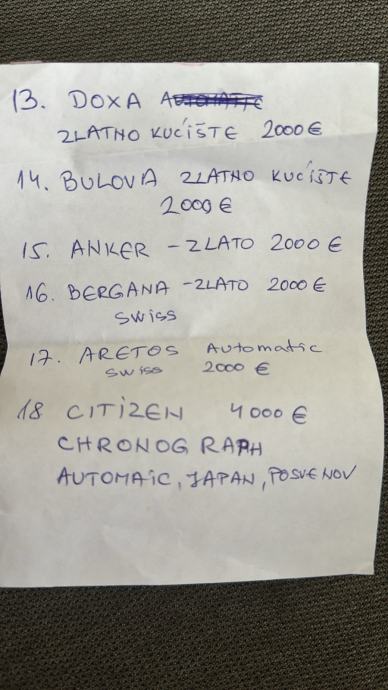 13. DOXA
ZLATNO KUĆIŠTE 2000 €
14. BULOVA ZLATNO KUĆIŠTE
2000 €
15. ANKER - ZLATO 2000 €
16. BERGANA - ZLATO 2000 €
SWISS
17. ARETOS Automatic
SWISS 2000 €
18 CITIZEN 4000 €
CHRONOGRAPH
AUTOMAIC, JAPAN, POSVE NOV